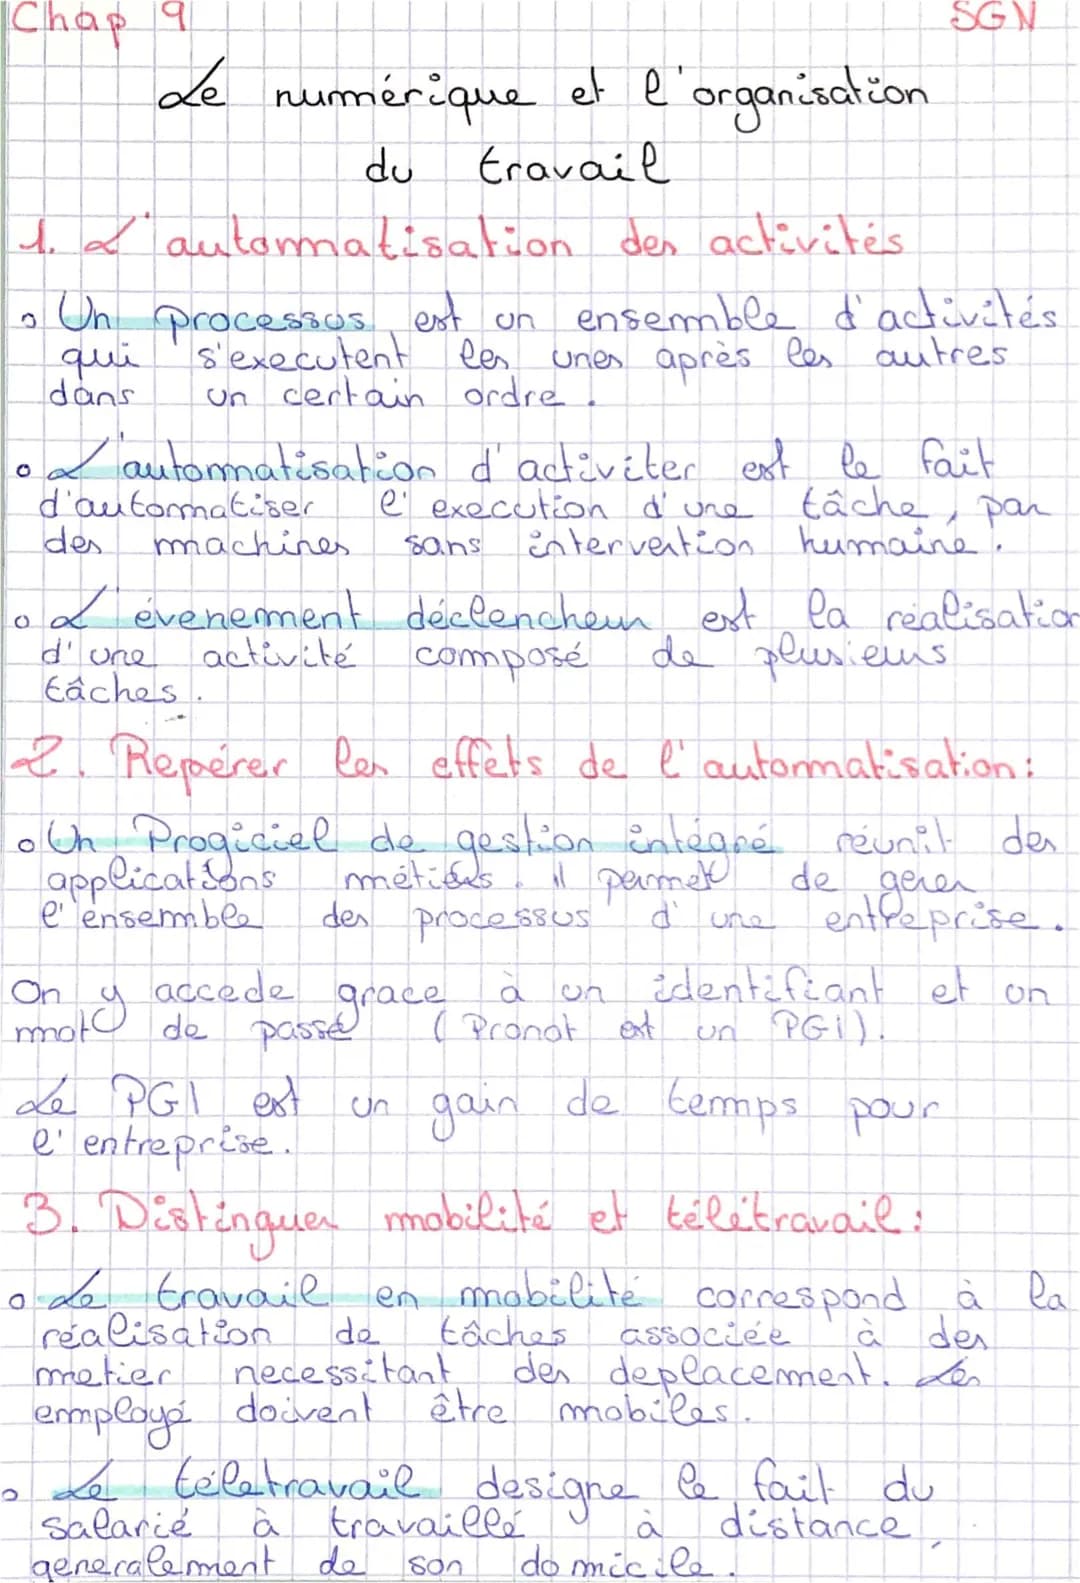 Chap 9 SGN
Le numérique et l'organisation
du travail
1. L'automatisation des activités
Un processus est un ensemble d'activités
qui s'executent les unes après les autres
dans un certain ordre.
L'automatisation d'activiter est le fait
d'automatiser l'execution d'une tâche, par
des machines sans intervention humaine.
L'évenement déclencheur est la réalisation
d'une activité composé de plusieurs
tâches.
2. Repérer les effets de l'automatisation:
Un Progiciel de gestion intégré réunit des
applications métiers. il permet de gerer
l'ensemble des processus d'une entreprise.
On y accede grace à un identifiant et un
mot de passe (Pronot est un PGI).
Le PGI est un gain de temps pour
l'entreprise.
3. Distinguer mobilité et télétravail:
Le travail en mobilité correspond à la
réalisation de tâches associée à des
metier necessitant des deplacement. Les
employé doivent être mobiles.
Le télétravail designe le fait du
salarié à travaillé à distance,
generalement de son domicile.